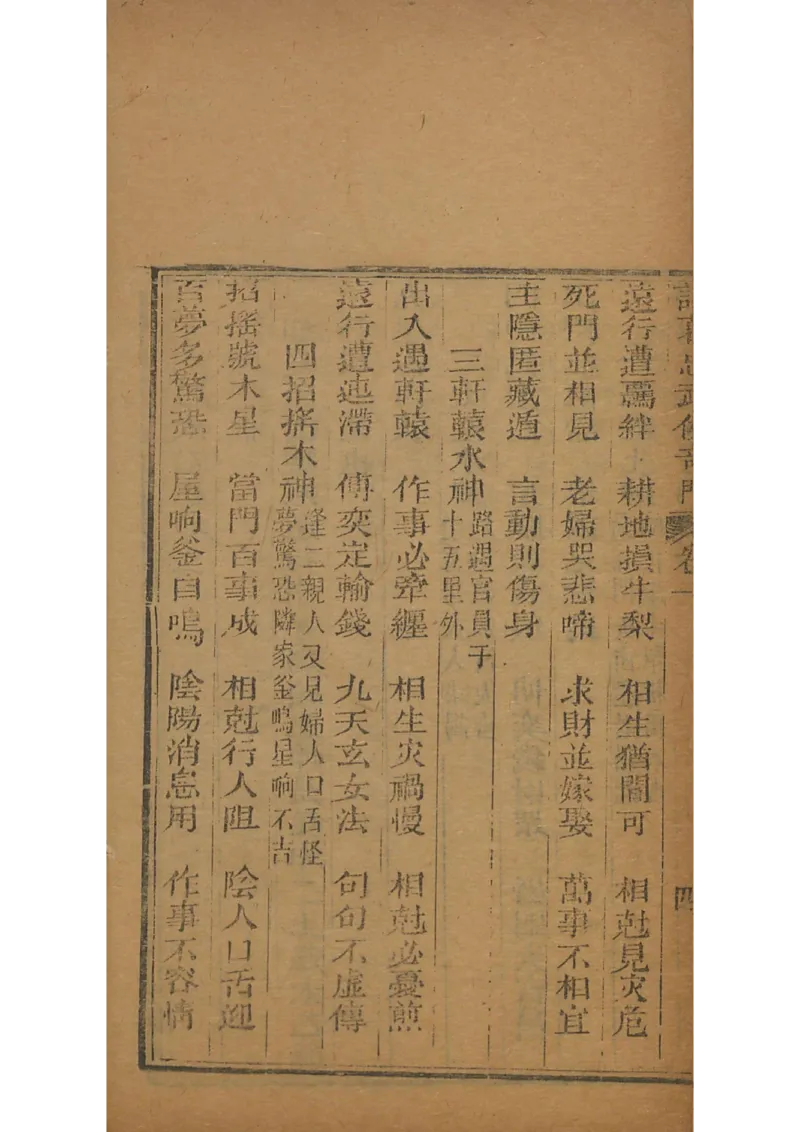 遠行遭羈絆 耕地損牛犁 相生猶閣可 相尅見灾危
死門並相見 老婦哭悲啼 求財並嫁娶 萬事不相宜
主隱匿藏遁 言動則傷身
三軒轅水神 路遇官員于十五里外
出入遇軒轅 作事必牽纏 相生灾禍慢 相尅必憂煎
遠行遭迍滯 傅奕定輸錢 九天玄女法 句句不虛傳
四招搖木神 逢二親人又見婦人口舌怪夢驚恐隣家釡鳴星响不吉
招搖號木星 當門百事成 相尅行人阻 陰人口舌迎
百夢多驚恐 屋响釡自鳴 陰陽消息用 作事不容情